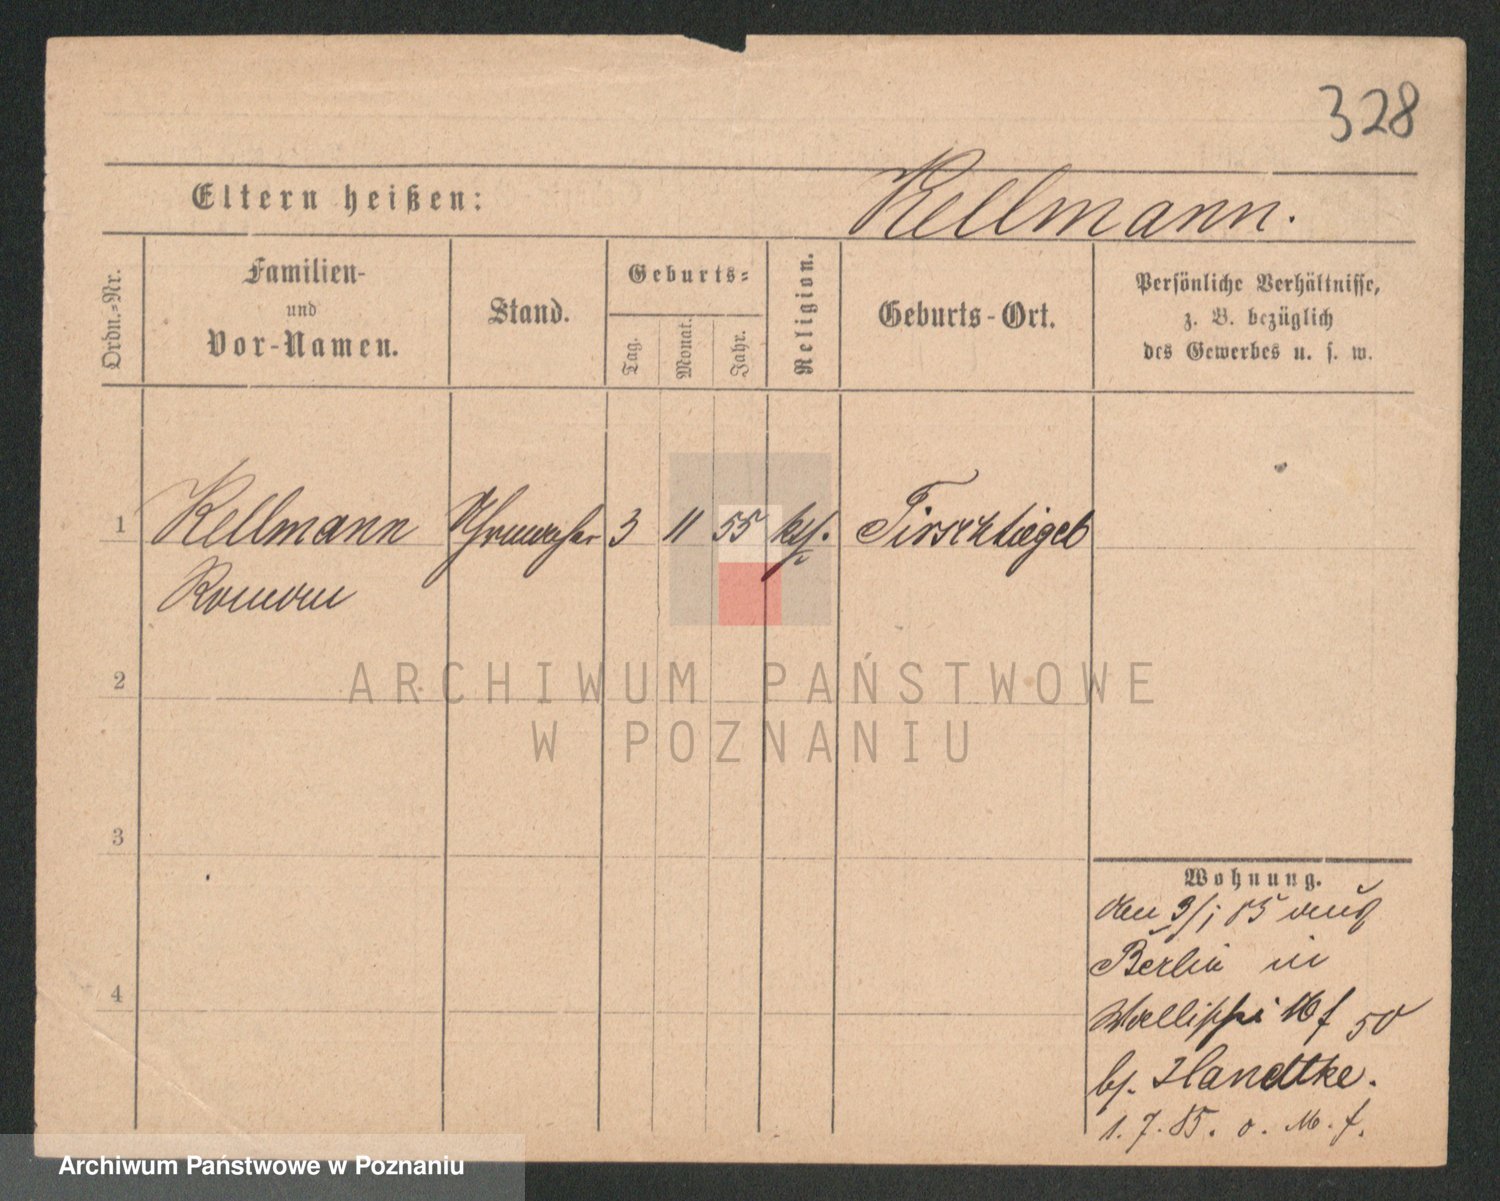 328
Eltern heißen:
Kellmann.
Ordn.-Nr.
Familien-
und
Vor-Namen.
Stand.
Geburts-
Tag.
Monat.
Jahr.
Religion.
Geburts-Ort.
Persönliche Verhältnisse,
z. B. bezüglich
des Gewerbes u. s. w.
1
Kellmann
3
11
55
kth.
Tirschtiegel
Roman
2
3
4
Wohnung.
den 3/1 85 aus
Berlin in
Wallischei 50
b/. Handtke.
1. 7. 85. o. M. f.
ARCHIWUM PAŃSTWOWE
W POZNANIU
Archiwum Państwowe w Poznaniu